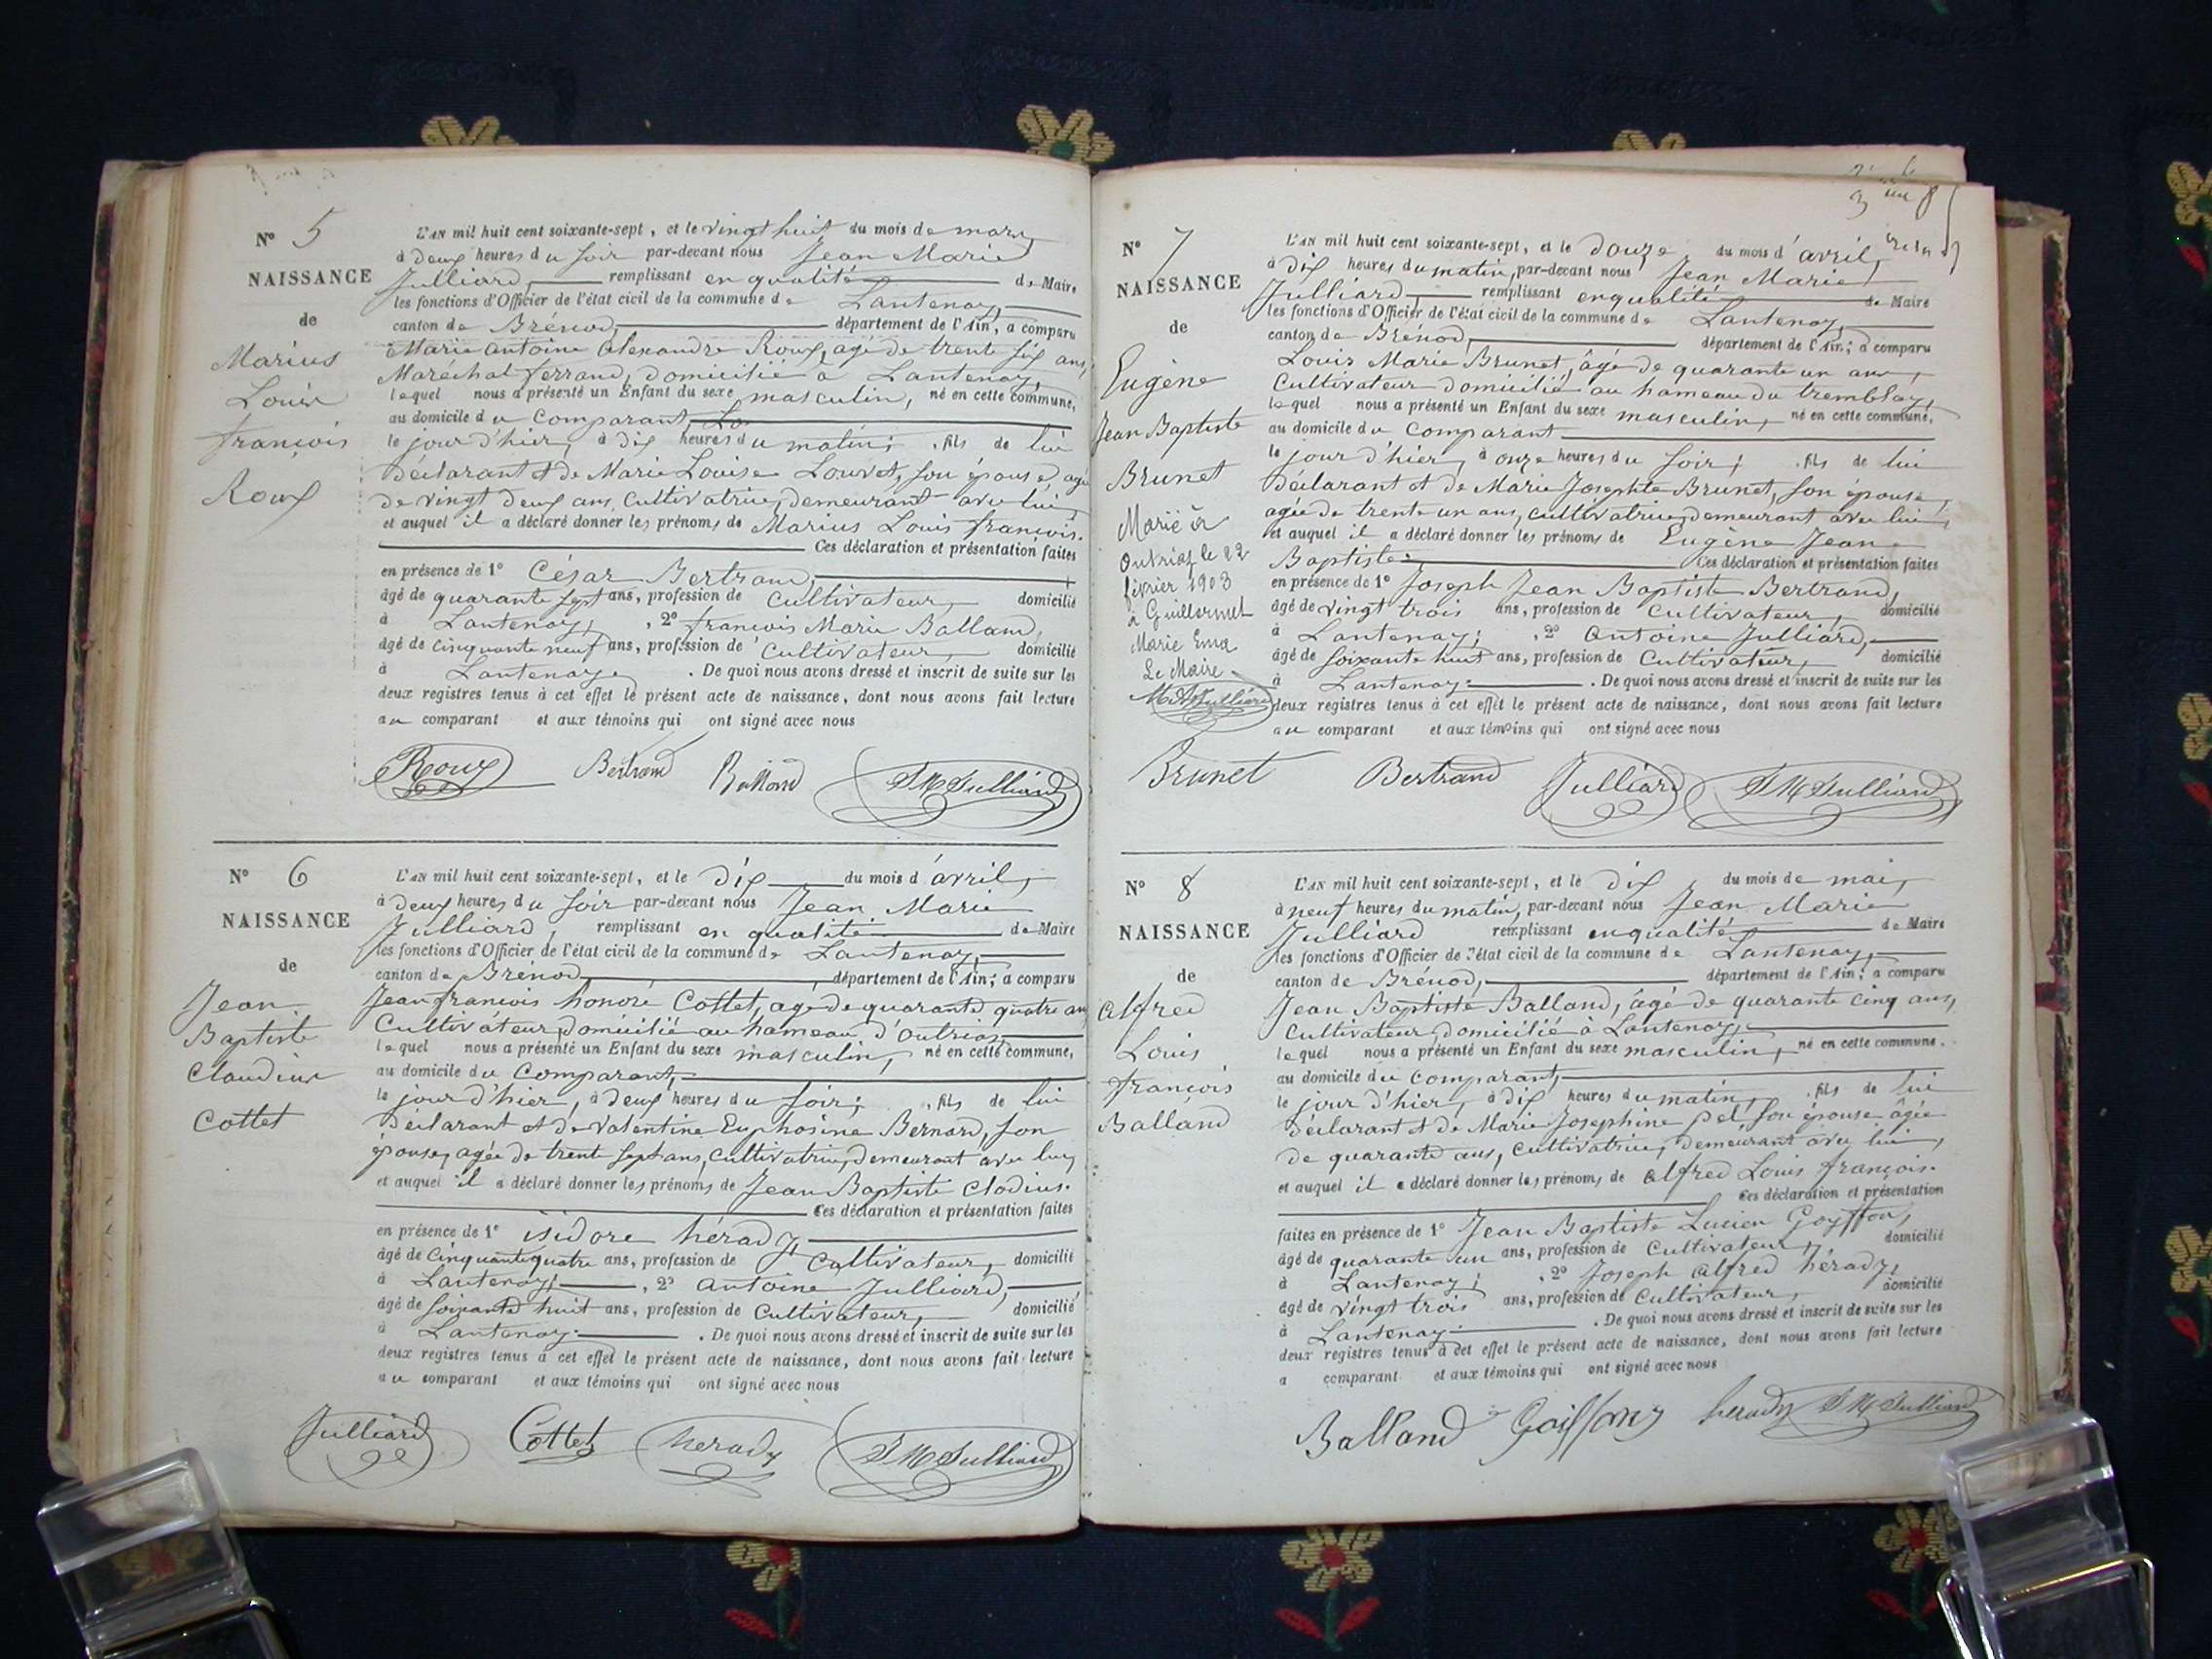 N° 5
NAISSANCE
de
Marius
Louis
françois
Roux
L'AN mil huit cent soixante-sept, et le vingt huit du mois de mars,
à deux heures du soir par-devant nous Jean Marie
Julliard, remplissant en qualité de Maire
les fonctions d'Officier de l'état civil de la commune de Lantenay,
canton de Brénod, département de l'Ain, a comparu
Marie antoine alexandre Roux, agé de trente six ans,
Marechal ferrand, domicilié à Lantenay,
lequel nous a présenté un Enfant du sexe masculin, né en cette commune,
au domicile du Comparant,
le jour d'hier, à dix heures du matin; fils de lui
Déclarant et de Marie Louise Louvet, son épouse, agée
de vingt deux ans, Cultivatrice, demeurant avec lui,
et auquel il a déclaré donner les prénoms de Marius Louis françois.
Ces déclaration et présentation faites
en présence de 1° César Bertrand,
âgé de quarante sept ans, profession de Cultivateur, domicilié
à Lantenay, 2° françois Marie Balland,
âgé de cinquante neuf ans, profession de Cultivateur, domicilié
à Lantenay. De quoi nous avons dressé et inscrit de suite sur les
deux registres tenus à cet effet le présent acte de naissance, dont nous avons fait lecture
au comparant et aux témoins qui ont signé avec nous
Roux Bertrand Balland JM Julliard
N° 6
NAISSANCE
de
Jean
Baptiste
Claudius
Cottet
L'AN mil huit cent soixante-sept, et le dix du mois d'avril,
à deux heures du soir par-devant nous Jean Marie
Julliard, remplissant en qualité de Maire
les fonctions d'Officier de l'état civil de la commune de Lantenay,
canton de Brénod, département de l'Ain; a comparu
Jean françois honoré Cottet, agé de quarante quatre ans
Cultivateur, domicilié au hameau d'outriaz,
lequel nous a présenté un Enfant du sexe masculin, né en cette commune,
au domicile du Comparant,
le jour d'hier, à deux heures du soir; fils de lui
Déclarant et de Valentine Euphosine Bernard, son
épouse, agée de trente sept ans, cultivatrice, demeurant avec luy
et auquel il a déclaré donner les prénoms de Jean Baptiste Clodius.
Ces déclaration et présentation faites
en présence de 1° isidore hérady,
âgé de Cinquante quatre ans, profession de Cultivateur, domicilié
à Lantenay; 2° antoine Julliard,
âgé de soixante huit ans, profession de Cultivateur, domicilié
à Lantenay. De quoi nous avons dressé et inscrit de suite sur les
deux registres tenus à cet effet le présent acte de naissance, dont nous avons fait lecture
au comparant et aux témoins qui ont signé avec nous
Julliard Cottet hérady JM Julliard
N° 7
NAISSANCE
de
Eugène
Jean Baptiste
Brunet
Marié à
Outriaz le 22
février 1903
à Guillermet
Marie Ema
Le Maire
L'AN mil huit cent soixante-sept, et le douze du mois d'avril,
à dix heures du matin, par-devant nous Jean Marie
Julliard, remplissant en qualité de Maire
les fonctions d'Officier de l'état civil de la commune de Lantenay,
canton de Brénod, département de l'Ain; a comparu
Louis Marie Brunet, âgé de quarante un ans,
Cultivateur domicilié au hameau du tremblay,
lequel nous a présenté un Enfant du sexe masculin, né en cette commune,
au domicile du Comparant
le jour d'hier, à onze heures du soir; fils de lui
Déclarant et de Marie Josephte Brunet, son épouse,
agée de trente un ans, cultivatrice, demeurant avec lui,
et auquel il a déclaré donner les prénoms de Eugène Jean
Baptiste. Ces déclaration et présentation faites
en présence de 1° Joseph Jean Baptiste Bertrand,
âgé de vingt trois ans, profession de Cultivateur, domicilié
à Lantenay; 2° antoine Julliard,
âgé de soixante huit ans, profession de Cultivateur, domicilié
à Lantenay. De quoi nous avons dressé et inscrit de suite sur les
deux registres tenus à cet effet le présent acte de naissance, dont nous avons fait lecture
au comparant et aux témoins qui ont signé avec nous
Brunet Bertrand Julliard JM Julliard
N° 8
NAISSANCE
de
Alfred
Louis
françois
Balland
L'AN mil huit cent soixante-sept, et le dix du mois de mai,
à neuf heures du matin, par-devant nous Jean Marie
Julliard remplissant en qualité de Maire
les fonctions d'Officier de l'état civil de la commune de Lantenay,
canton de Brénod, département de l'Ain; a comparu
Jean Baptiste Balland, âgé de quarante cinq ans,
Cultivateur, domicilié à Lantenay,
lequel nous a présenté un Enfant du sexe masculin, né en cette commune.
au domicile du comparant,
le jour d'hier, à dix heures du matin, fils de lui
Déclarant et de Marie Josephine pél, son épouse agée
de quarante ans, cultivatrice, demeurant avec lui,
et auquel il a déclaré donner les prénoms de alfred Louis françois.
Ces déclaration et présentation
faites en présence de 1° Jean Baptiste Lucien Goyffon,
âgé de quarante un ans, profession de Cultivateur, domicilié
à Lantenay; 2° Joseph alfred hérady,
âgé de vingt trois ans, profession de Cultivateur, domicilié
à Lantenay. De quoi nous avons dressé et inscrit de suite sur les
deux registres tenus à cet effet le présent acte de naissance, dont nous avons fait lecture
a comparant et aux témoins qui ont signé avec nous
Balland Goiffon hérady JM Julliard